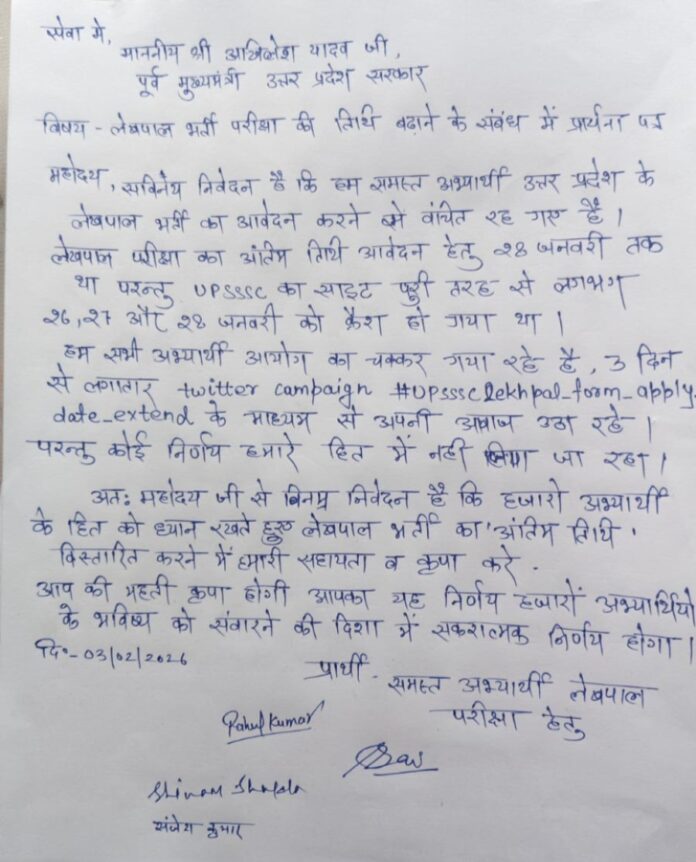 सेवा मे,
माननीय श्री अखिलेश यादव जी,
पूर्व मुख्यमंत्री उत्तर प्रदेश सरकार
विषय - लेखपाल भर्ती परीक्षा की तिथि बढ़ाने के संबंध में प्रार्थना पत्र
महोदय, सविनय निवेदन है कि हम समस्त अभ्यार्थी उत्तर प्रदेश के
लेखपाल भर्ती का आवेदन करने से वंचित रह गए हैं।
लेखपाल परीक्षा का अंतिम तिथि आवेदन हेतु 28 जनवरी तक
था परन्तु UPSSSC का साइट पुरी तरह से लगभग
26,27 और 28 जनवरी को क्रैश हो गया था।
हम सभी अभ्यार्थी आयोग का चक्कर गया रहे है, 3 दिन
से लगातार twitter campaign #UPSSSClekhpal_form_apply_
date_extend के माध्यम से अपनी आवाज उठा रहे।
परन्तु कोई निर्णय हमारे हित में नही लिया जा रहा।
अतः महोदय जी से विनम्र निवेदन है कि हजारो अभ्यार्थी
के हित को ध्यान रखते हुए लेखपाल भर्ती का 'अंतिम तिथी'
विस्तारित करने में हमारी सहायता व कृपा करे.
आप की महती कृपा होगी आपका यह निर्णय हजारों अभ्यार्थियो
के भविष्य को संवारने की दिशा में सकरात्मक निर्णय होगा।
दि०-03/02/2026
प्रार्थी - समस्त अभ्यार्थी लेखपाल
परीक्षा हेतु
Rahul Kumar
Shivam
कुमार